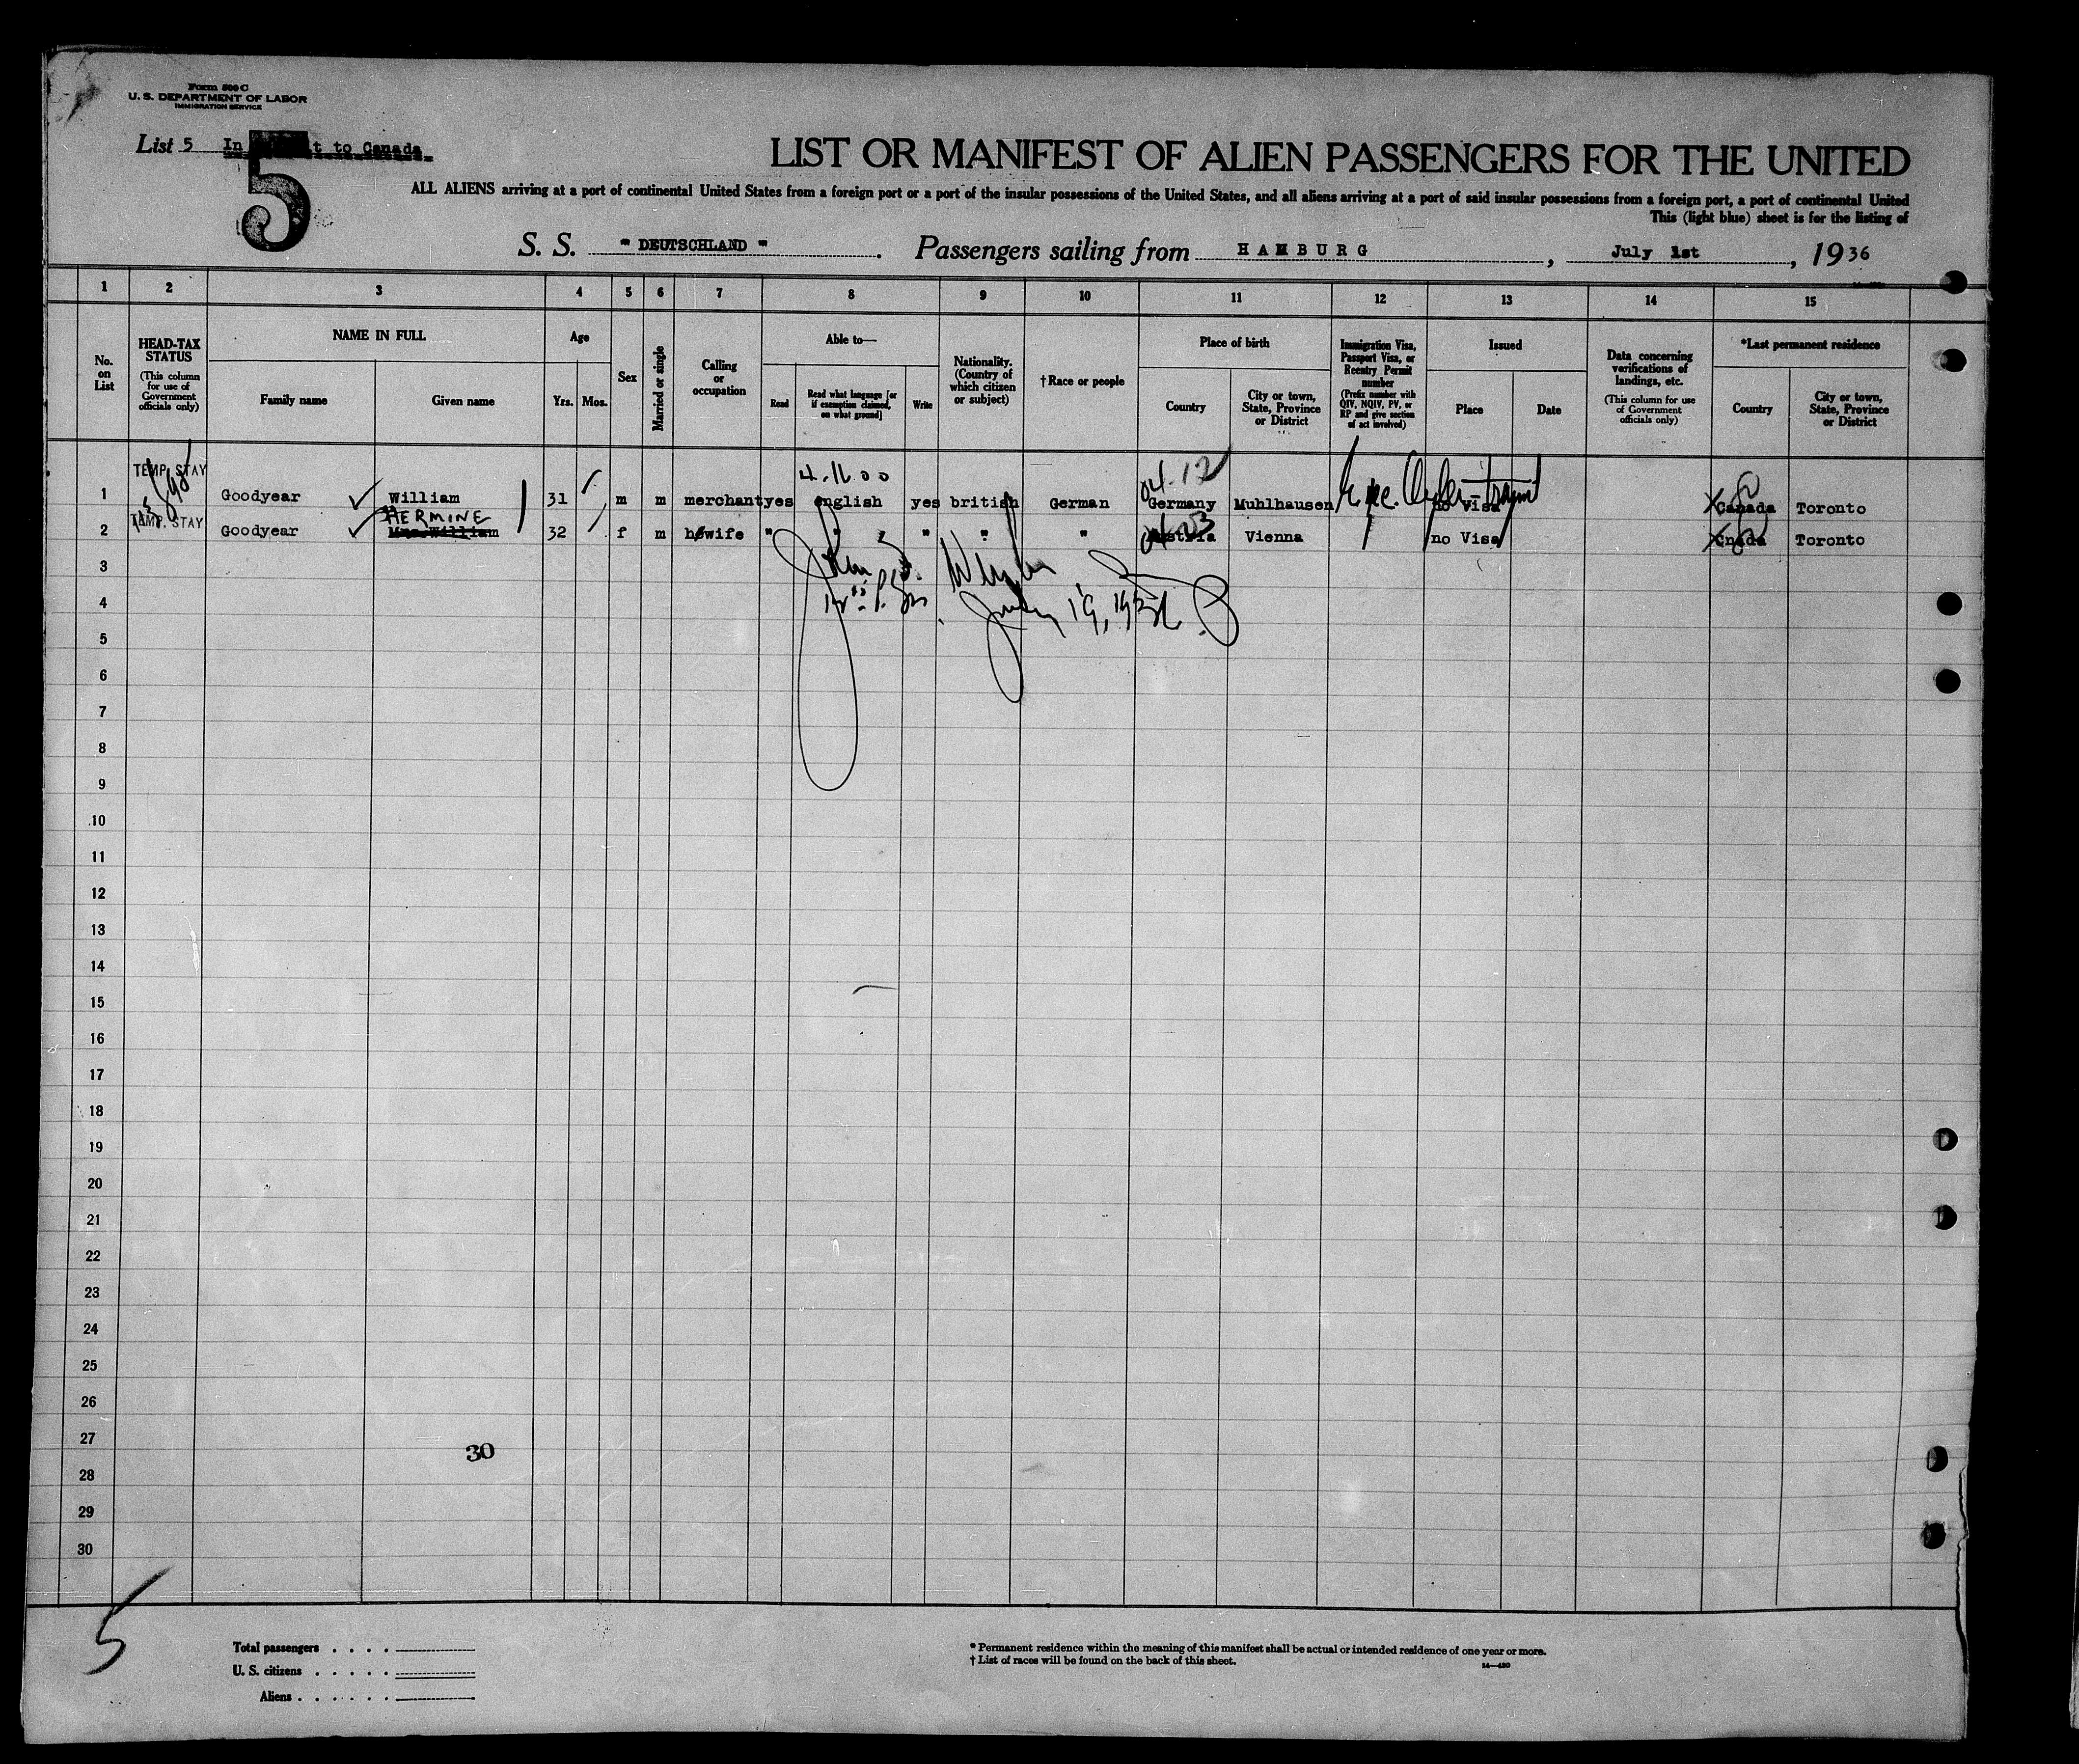 Form 500 C
U. S. DEPARTMENT OF LABOR
IMMIGRATION SERVICE
List 5 In t to Canada
5
LIST OR MANIFEST OF ALIEN PASSENGERS FOR THE UNITED
ALL ALIENS arriving at a port of continental United States from a foreign port or a port of the insular possessions of the United States, and all aliens arriving at a port of said insular possessions from a foreign port, a port of continental United
This (light blue) sheet is for the listing of
S. S. " DEUTSCHLAND " . Passengers sailing from HAMBURG , July 1st , 19 36
1 2 3 4 5 6 7 8 9 10 11 12 13 14 15
No. on List
HEAD-TAX STATUS
(This column for use of Government officials only)
NAME IN FULL
Family name Given name
Age
Yrs. Mos.
Sex
Married or single
Calling or occupation
Able to—
Read Read what language [or if exemption claimed, on what ground] Write
Nationality. (Country of which citizen or subject)
† Race or people
Place of birth
Country City or town, State, Province or District
Immigration Visa, Passport Visa, or Reentry Permit number
(Prefix number with QIV, NQIV, PV, or RP and give section of act involved)
Issued
Place Date
Data concerning verifications of landings, etc.
(This column for use of Government officials only)
*Last permanent residence
Country City or town, State, Province or District
TEMP. STAY 4.11.00 04.12
1 Goodyear William 31 m m merchant yes english yes british German Germany Muhlhausen no Visa Canada Toronto
TEMP. STAY HERMINE
2 Goodyear Mrs. William 32 f m hswife " " " " " Austria Vienna no Visa Cnada Toronto
3
4
5
6
7
8
9
10
11
12
13
14
15
16
17
18
19
20
21
22
23
24
25
26
27
30
28
29
30
5
Total passengers . . . .
U. S. citizens . . . . .
Aliens . . . . . . .
* Permanent residence within the meaning of this manifest shall be actual or intended residence of one year or more.
† List of races will be found on the back of this sheet.
14—430